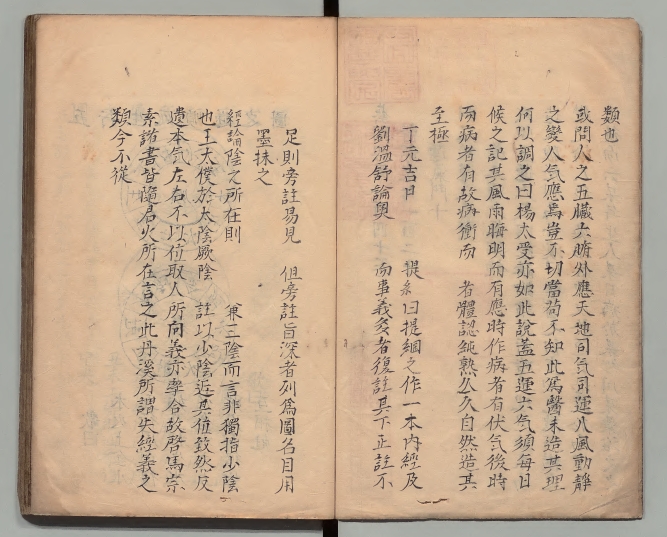 類也
或問人之五臟六腑外應天地司气司運八風動靜
之變人气應焉豈不切當苟不知此為醫未造其理
何以調之曰楊太受亦如此說蓋五運六气須每日
候之記其風雨晦明而有應時作病者有伏气後時
而病者有故病衝而　者體認純熟久久自然造其
至極
丁元吉曰　提綱曰提綱之作一本內經及
劉溫舒論奧　而事義多者復註其下正註不
足則旁註易見　但旁註旨深者列爲圖名目用
墨抹之
經論陰之所在則　兼三陰而言非獨指少陰
也王太僕於太陰厥陰　註以少陰近其位致然反
遺本气左右不以位取人所向義亦牽合故啓馬宗
素諸書皆隨君火所在言之此丹溪所謂失經義之
類今不從